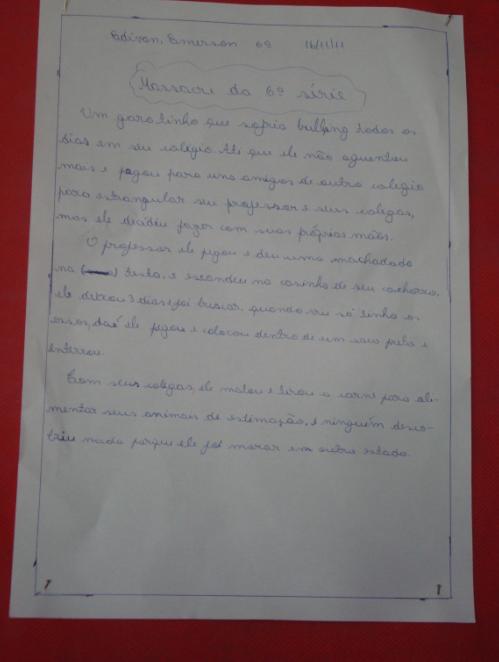 Edivan, Emerson 6ª 16/11/11
Massacre da 6ª série
Um garotinho que sofria bullying todos os
dias em seu colégio té que ele não aguentou
mais e pagou para uns amigos de outro colegio
para estrangular seu professor e seus colegas,
mas ele decidiu fazer com suas próprias mãos.
O professor ele pegou e deu uma machadada
na testa, e escondeu na casinha de seu cachorro,
ele deixou 3 dias e foi buscar, quando viu só tinha os
ossos, daí ele pegou e colocou dentro de um saco preto e
enterrou.
Com seus colegas, ele matou e tirou a carne para ali-
mentar seus animais de estimação, e ninguém desco-
briu nada porque ele foi morar em outro estado.